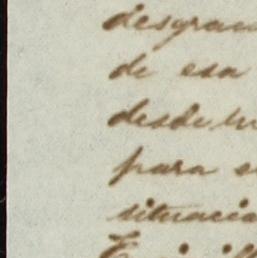 desgrac
de esa
desde lu
para s
situacio